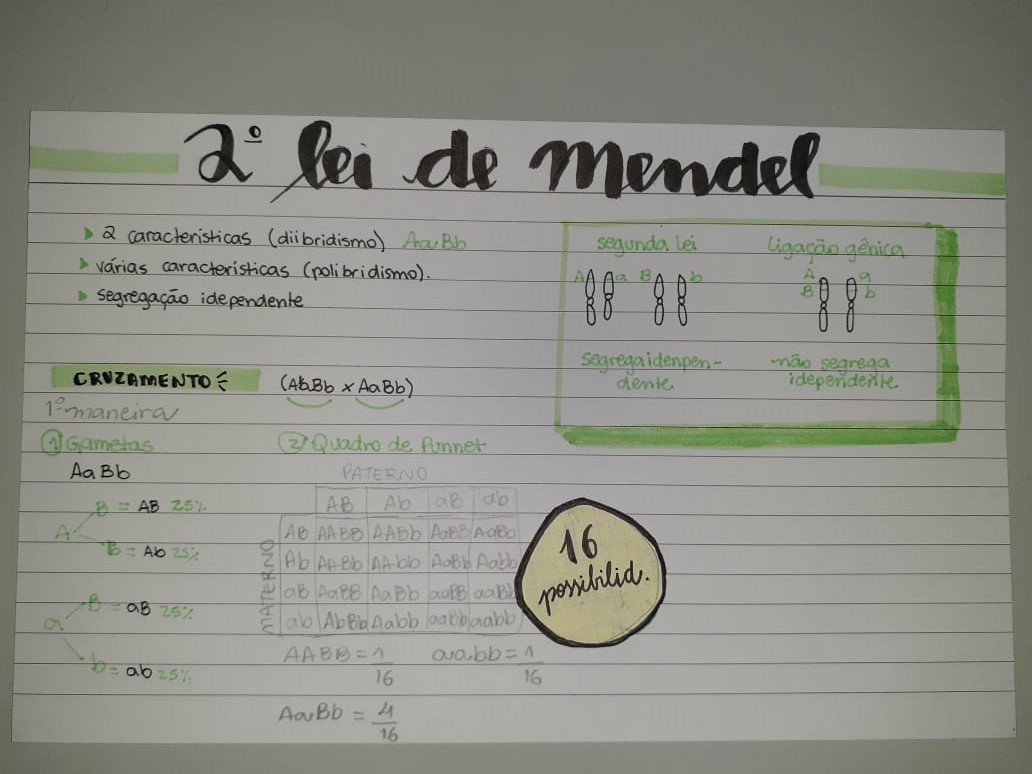 2º lei de mendel
2 características (diibridismo) AaBb
várias características (polibridismo).
segregação idependente
segunda lei
A a B b
segregaidenpen-
dente
ligação gênica
A a
B b
não segrega
idependente
CRUZAMENTO
(AaBb x AaBb)
1º maneira
① Gametas
AaBb
A
B = AB 25%
B = Ab 25%
a
B = aB 25%
b = ab 25%
② Quadro de Punnet
PATERNO
MATERNO
AB Ab aB ab
AB AABB AABb AaBB AaBb
Ab AABb AAbb AaBb Aabb
aB AaBB AaBb aaBB aaBb
ab AbBb Aabb aaBb aabb
AABB = 1/16 aabb = 1/16
AaBb = 4/16
16
possibilid.